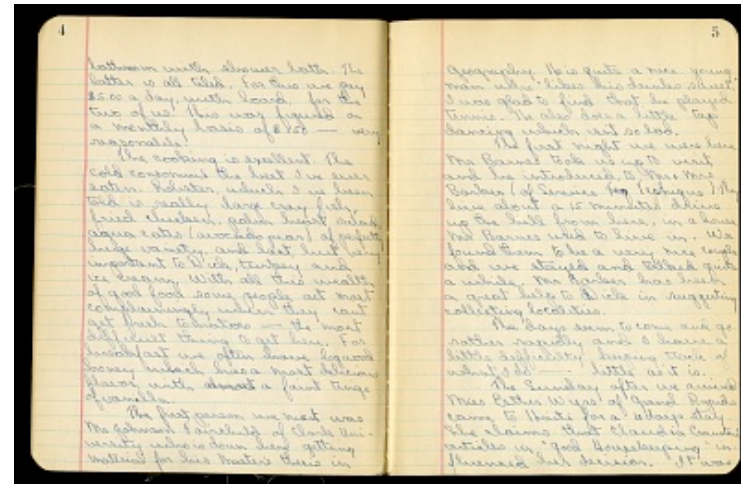 4
bathroom with shower bath. The
latter is all tiled. For this we pay
$5.00 a day, with board, for the
two of us. This was figured on
a monthly basis of $150 — very
reasonable!
The cooking is excellent. The
cold consommé the best I've ever
eaten. Lobster, which I've been
told is really large cray fish,
fried chicken, palm heart salad,
agua cates (avocado pear) of
huge variety, and last but very
important to Dick, turkey and
ice cream. With all this wealth
of good food some people act most
complainingly when they can't
get fresh tomatoes — the most
difficult thing to get here. For
breakfast we often have logwood
honey which has a most delicious
flavor with almost a faint tinge
of vanilla.
The first person we met was
Mr Johnson Fairchild of Clark Uni-
versity who is down here getting
material for his Masters thesis in
5
geography. He is quite a nice young
man who "likes his drinks sweet."
I was glad to find that he played
tennis. He also does a little tap
dancing which isnt so bad.
The first night we were here
Mr Barnes took us up to visit
and he introduced, to Mr & Mrs
Barker (of Service Technique) They
live about a 15 minutes drive
up the hill from here, in a house
Mr Barnes used to live in. We
found them to be a very nice couple
and we stayed and talked quite
a while. Mr Barker has been
a great help to Dick in suggesting
collecting localities.
The days seem to come and go
rather rapidly and I have a
little difficulty keeping track of
what I do — little as it is.
The Sunday after we arrived
Miss Esther Wyss of Grand Rapids
came to Haiti for a days stay.
She claims that Claudia
articles in "Good Housekeeping" in-
fluenced her decision. It was